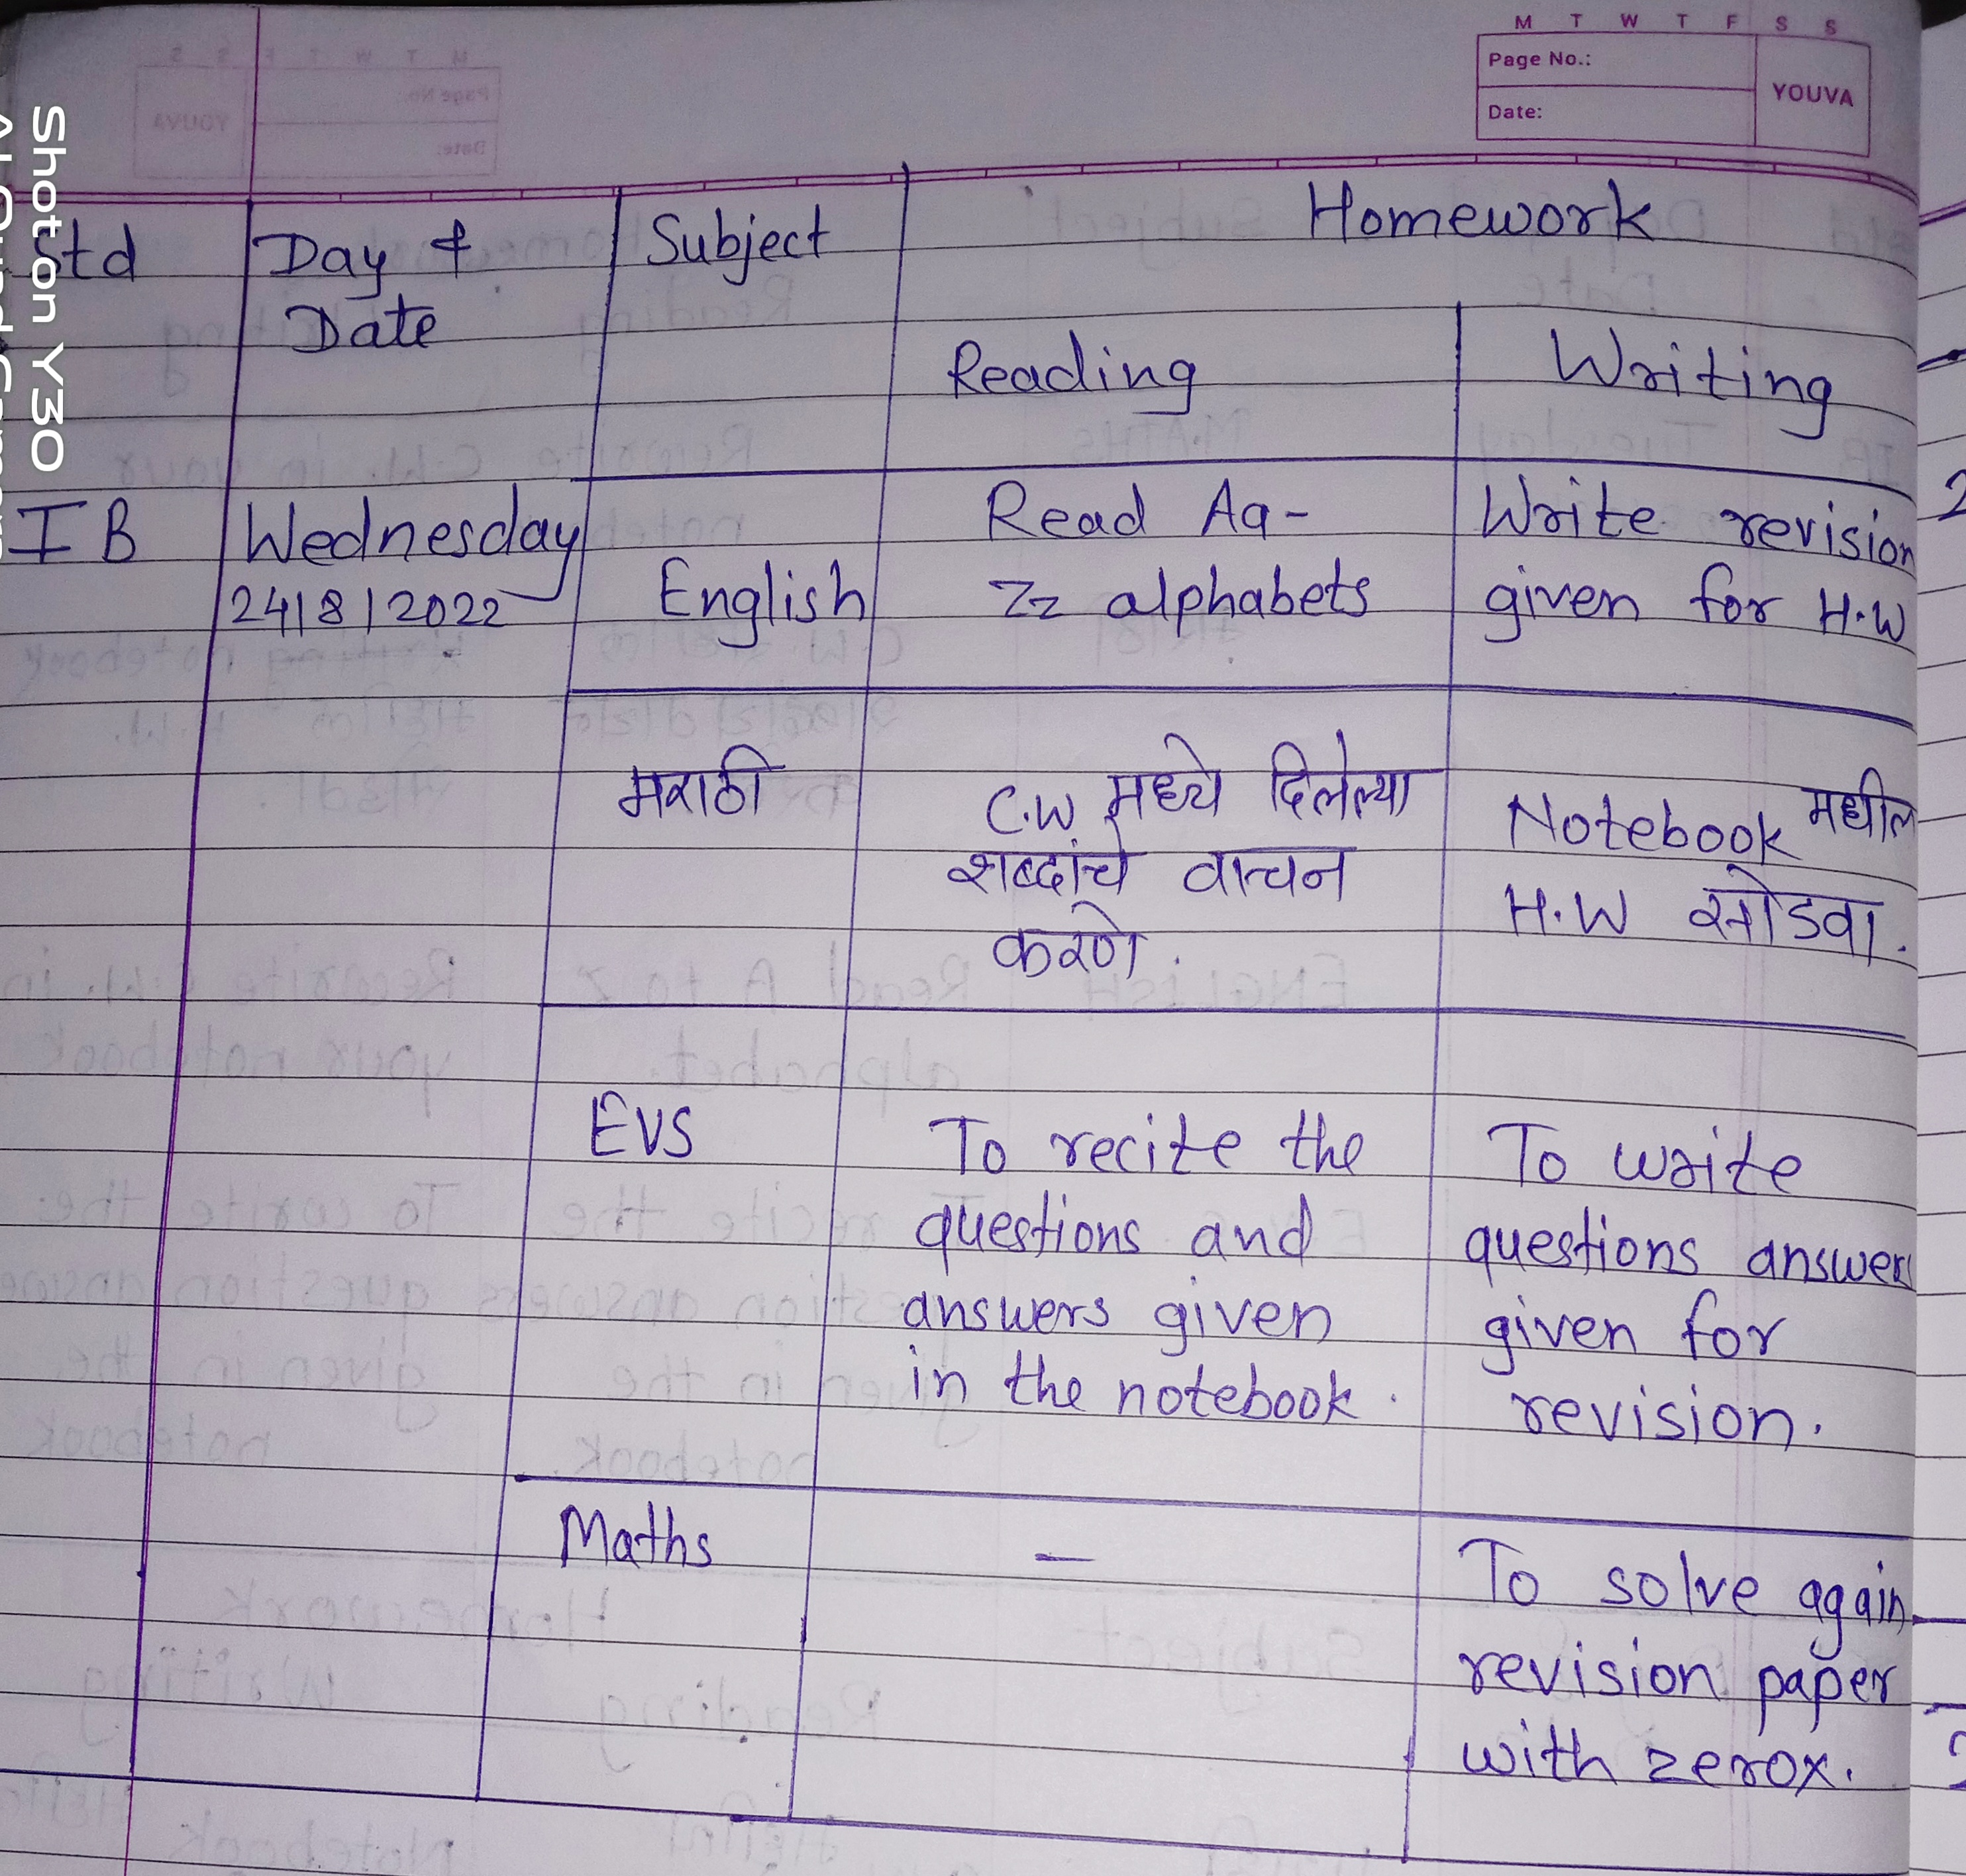 M T W T F S S
Page No.:
YOUVA
Date:
Shot on Y30
Std
Day & Date
Subject
Homework
Reading
Writing
I B
Wednesday
24/8/2022
English
Read Aa-
Zz alphabets
Write revision
given for H.W
मराठी
C.W मध्ये दिलेल्या
शब्दांचे वाचन
करणे.
Notebook मधील
H.W सोडवा.
EVS
To recite the
questions and
answers given
in the notebook.
To write
questions answers
given for
revision.
Maths
—
To solve again
revision paper
with zerox.